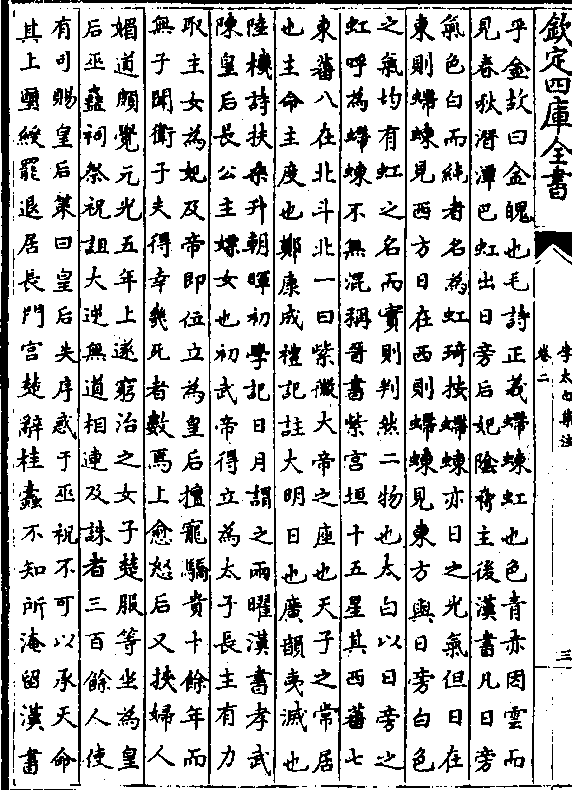 欽定四庫全書
李太白集注
卷二
三
乎金故曰金魄也毛詩正義螮蝀虹也色青赤因雲而
見春秋潛潭巴虹出日旁后妃陰脅主後漢書凡日旁
氣色白而純者名為虹琦按螮蝀亦日之光氣但日在
東則螮蝀見西方日在西則螮蝀見東方與日旁白色
之氣均有虹之名而實則判然二物也太白以日旁之
虹呼為螮蝀不無混稱晉書紫宮垣十五星其西蕃七
東蕃八在北斗北一曰紫微大帝之座也天子之常居
也主命主度也鄭康成禮記註大明日也廣韻夷滅也
陸機詩扶桑升朝暉初學記日月謂之兩曜漢書孝武
陳皇后長公主嫖女也初武帝得立為太子長主有力
取主女為妃及帝即位立為皇后擅寵驕貴十餘年而
無子聞衛子夫得幸幾死者數焉上愈怒后又挾婦人
媚道頗覺元光五年上遂窮治之女子楚服等坐為皇
后巫蠱祠祭祝詛大逆無道相連及誅者三百餘人使
有司賜皇后策曰皇后失序惑于巫祝不可以承天命
其上璽綬罷退居長門宮楚辭桂蠹不知所淹留漢書